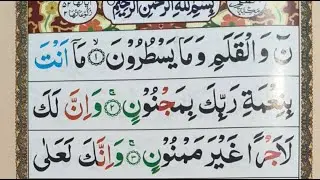 بِسْمِ اللّٰهِ الرَّحْمٰنِ الرَّحِيْمِ
نٓ وَالْقَلَمِ وَمَا يَسْطُرُوْنَ ۝١ مَا اَنْتَ
بِنِعْمَةِ رَبِّكَ بِمَجْنُوْنٍ ۝٢ وَاِنَّ لَكَ
لَاَجْرًا غَيْرَ مَمْنُوْنٍ ۝٣ وَاِنَّكَ لَعَلٰى